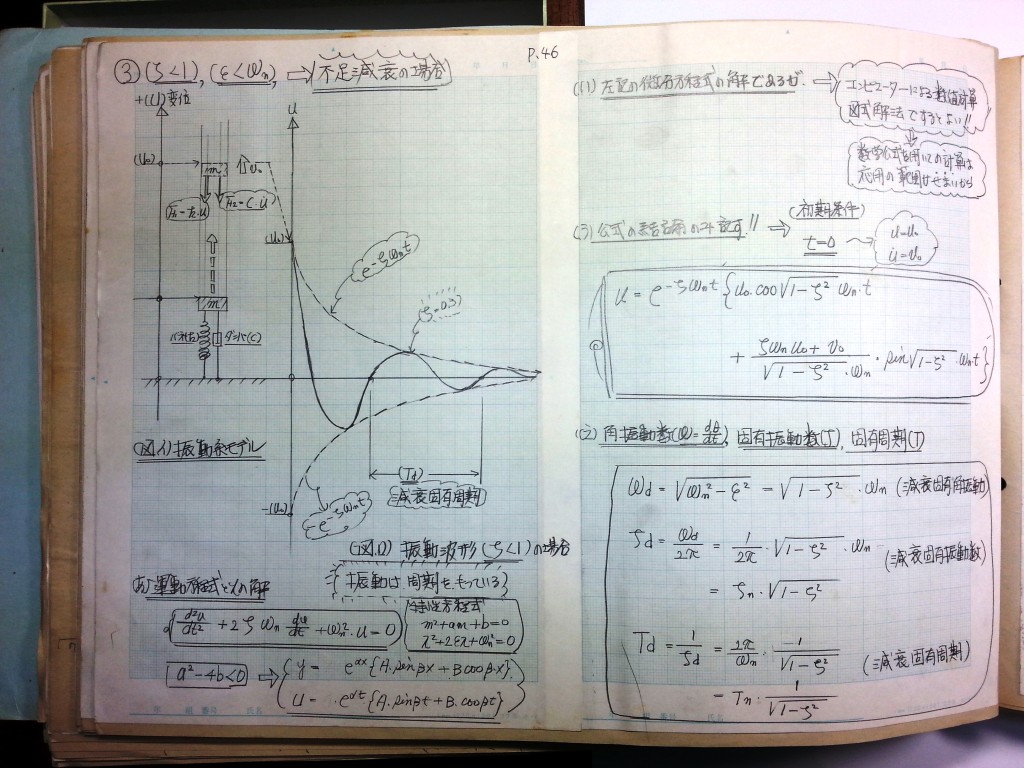 P.46
③ (ζ<1), (ε<ωn), ⇒ 不足減衰の場合
+(U)変位
U
(U₀)
m
v₀
F₁=k・u
F₂=C・u̇
(U₀)
e^-ζωnt
ζ=0.3
m
バネ(k)
ダンパ(C)
(図イ)振動系モデル
(Td)
減衰固有周期
-(U₀)
-e^-ζωnt
(図ロ) 振動波形(ζ<1)の場合
振動は、周期をもっている
(あ)運動方程式とその解
d²u/dt² + 2ζωn du/dt + ωn²・u = 0
特性方程式
m²+am+b=0
λ²+2ελ+ωn²=0
a²-4b<0 ⇒ y = e^αx{A.sinβx+Bcosβ.x}
u = .e^αt{A.sinβt+B.cosβt}
(い) 左記の微分方程式の解であるが ⇒
コンピューターによる数値計算
図式解法でするとよい!!
数学公式を用いての計算は
応用の範囲がせまいから
(う)公式の表示の み 記す!! ⇒ (初期条件)
t=0
u=u₀
u̇=v₀
u = e^-ζωnt {u₀.cos√1-ζ² ωn・t
+ ζωnu₀+v₀/√1-ζ².ωn ・sin√1-ζ².ωn・t}
(え) 角振動数(ω=dθ/dt), 固有振動数(f), 固有周期(T)
ωd = √ωn²-ε² = √1-ζ² .ωn (減衰固有角振動)
fd = ωd/2π = 1/2π・√1-ζ² .ωn (減衰固有振動数)
= fn.√1-ζ²
Td = 1/fd = 2π/ωn・1/√1-ζ² (減衰固有周期)
= Tn・1/√1-ζ²